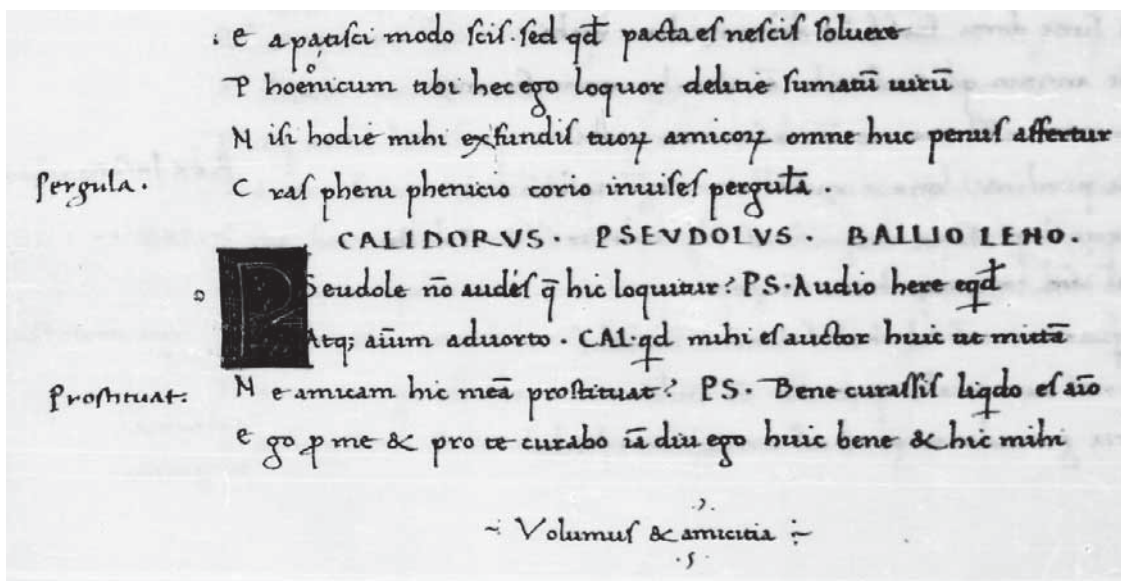 e apatiſci modo ſciſ. ſed qđ pacta eſ neſciſ ſoluere
P hoenicum tibi hec ego loquor delitie ſumatū uirū
N iſi hodie mihi exfundiſ tuoꝝ amicoꝝ omne huc penuſ affertur
Pergula. C raſ pheni phenicio corio inuiſeſ pergulā.
CALIDORVS. PSEVDOLVS. BALLIO LENO.
PSeudole nō audéſ q̄ hic loquitur? PS. Audio here eqđ
Atq; aīum aduorto. CAL. qd mihi eſ auctor huic ut mittā
Proſtituat: N e amicam hic meā proſtituat? PS. Bene curaſſiſ liqdo eſ aīo
e go ꝓ me & pro te curabo iā diu ego huic bene & hic mihi
Volumuſ & amicitia